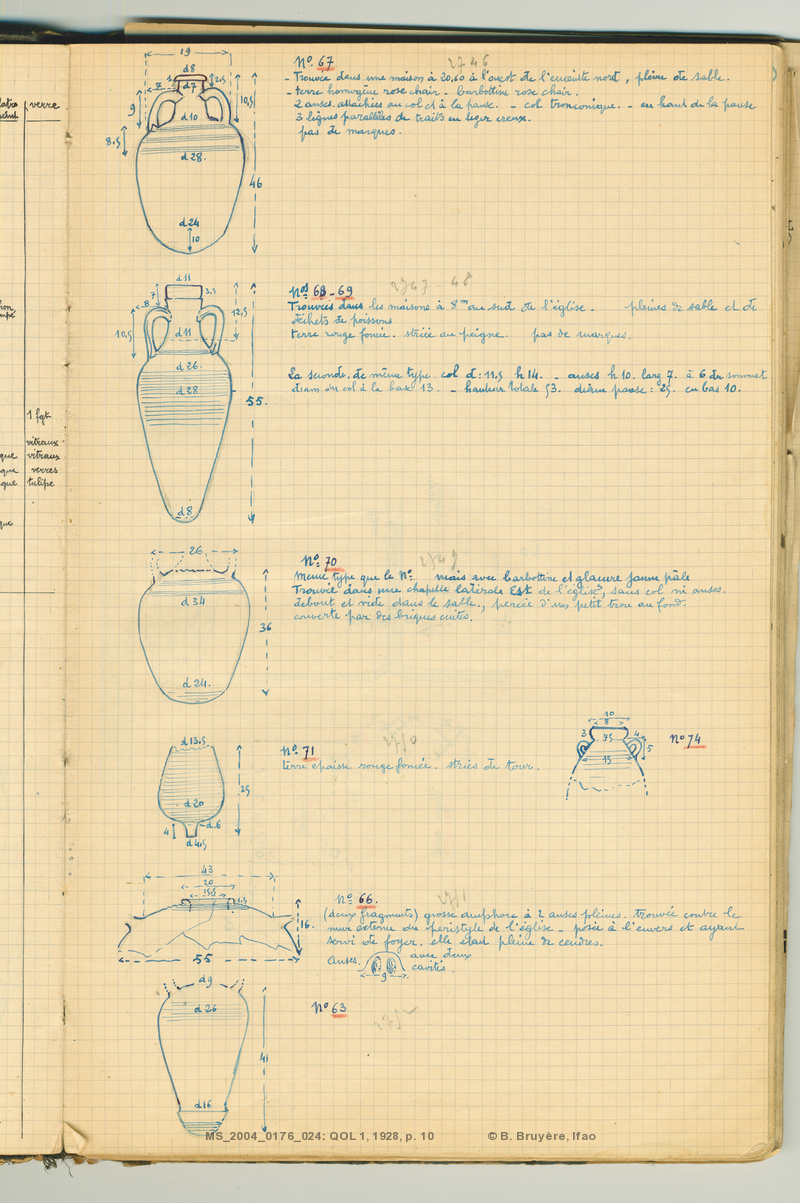 latre
verre.
19
d 8
7
d 7
2.5
9
10,5
d 10
8.5
d 28.
46
d 24
10
Nº 67 2746
- Trouvée dans une maison à 20,60 à l'ouest de l'enceinte nord, pleine de sable.
- terre homogène rose chair - barbottine rose chair.
2 anses attachées au col et à la panse. - col tronconique. - en haut de la panse
3 lignes parallèles de traits en léger creux.
pas de marques.
d 11
7
3.5
8
12,5
10,5
d 11
d 26.
d 28
55.
d 8
Nos 68 - 69 2747 - 48
Trouvées dans les maisons à 8m au sud de l'église. - pleines de sable et de
déchets de poissons
terre rouge foncée. striée au peigne. pas de marques.
La seconde de même type col d: 11,5 h 14. - anses h 10. larg 7. à 6 du sommet
diam du col à la base 13. - hauteur totale 53. diam panse: 25. en bas 10.
1 fgt.
vitraux
que vitraux
que verres
que tulipe
que
26
d 34
36
d 24.
Nº 70 2749
Même type que le Nº mais avec barbottine et glaçure jaune pâle
Trouvée dans une chapelle latérale Est de l'église, sans col ni anses.
debout et vide dans le sable., percée d'un petit trou au fond.
couverte par des briques cuites.
d 13,5
d 20
25
4
d. 6
d 4,5
Nº 71 2750
terre épaisse rouge foncée. stries de tour.
10
8
3
7,5
4
5
15
Nº 74
43
20
15,5
3,5
16.
55
Nº 66. 2751
(deux fragments) grosse amphore à 2 anses pleines. trouvée contre le
mur externe du péristyle de l'église - posée à l'envers et ayant
servi de foyer. elle était pleine de cendres.
Anses. avec deux
cavités.
9
d 9
d 26
41
d 16
Nº 63
2752
MS_2004_0176_024: QOL 1, 1928, p. 10 © B. Bruyère, Ifao